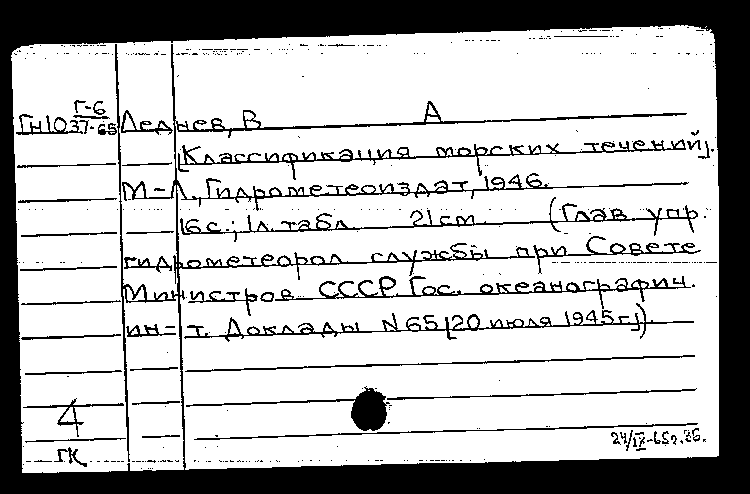 Г-6
ГН1037-65 Леднев, В А
[Классификация морских течений].
М-Л., Гидрометеоиздат, 1946.
16с.; 1л. табл. 21см. (Глав. упр.
гидрометеорол службы при Совете
Министров СССР. Гос. океанографич.
ин-т. Доклады N65 [20 июля 1945г.]).
4
ГК
24/IX-65г.